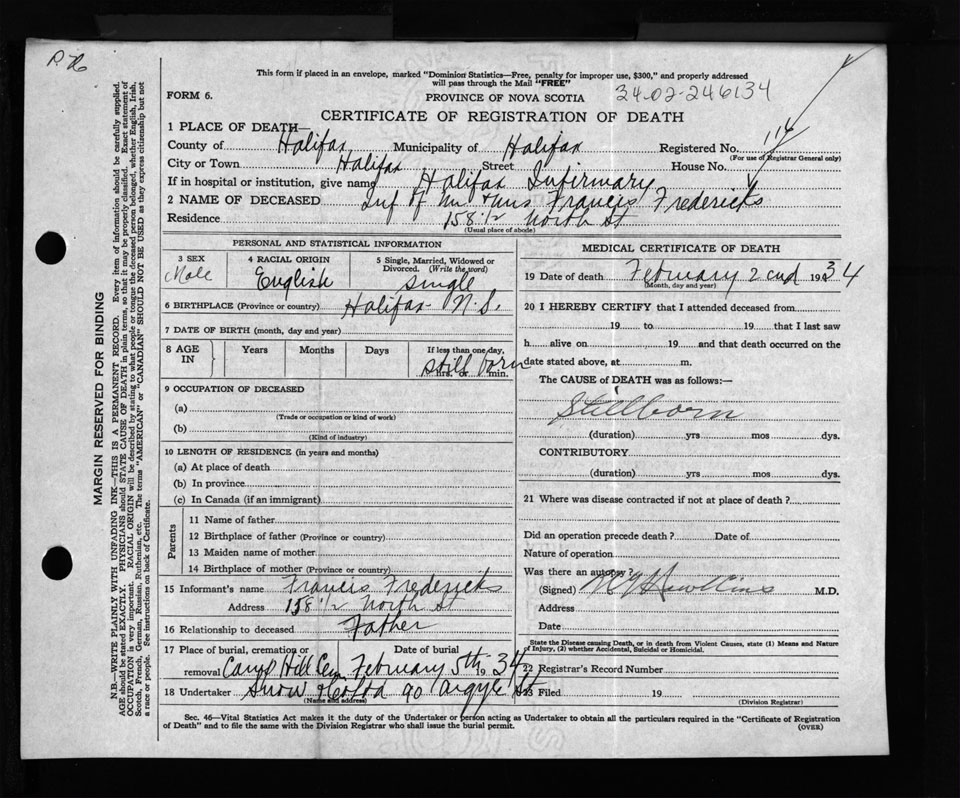 P. 76
This form if placed in an envelope, marked "Dominion Statistics—Free, penalty for improper use, $300," and properly addressed
will pass through the Mail "FREE"
FORM 6.
PROVINCE OF NOVA SCOTIA
34-02-246134
CERTIFICATE OF REGISTRATION OF DEATH
1 PLACE OF DEATH—
County of Halifax Municipality of Halifax Registered No. 116
(For use of Registrar General only)
City or Town Halifax Street House No.
If in hospital or institution, give name Halifax Infirmary
2 NAME OF DECEASED Inf of Mr & Mrs Francis Fredericks
Residence 158 1/2 North St
(Usual place of abode)
PERSONAL AND STATISTICAL INFORMATION
3 SEX Male
4 RACIAL ORIGIN English
5 Single, Married, Widowed or
Divorced. (Write the word)
single
6 BIRTHPLACE (Province or country) Halifax N.S.
7 DATE OF BIRTH (month, day and year)
8 AGE IN Years Months Days If less than one day,
still born
hrs. or min.
9 OCCUPATION OF DECEASED
(a)
(Trade or occupation or kind of work)
(b)
(Kind of industry)
10 LENGTH OF RESIDENCE (in years and months)
(a) At place of death
(b) In province
(c) In Canada (if an immigrant)
Parents
11 Name of father
12 Birthplace of father (Province or country)
13 Maiden name of mother
14 Birthplace of mother (Province or country)
15 Informant's name Francis Fredericks
Address 158 1/2 North St
16 Relationship to deceased Father
17 Place of burial, cremation or Date of burial
removal Camp Hill Cem February 5th 1934
18 Undertaker Snow & 90 Argyle St
(Name and address)
MEDICAL CERTIFICATE OF DEATH
19 Date of death February 2nd 1934
(Month, day and year)
20 I HEREBY CERTIFY that I attended deceased from
19 to 19 that I last saw
h alive on 19 and that death occurred on the
date stated above, at m.
The CAUSE of DEATH was as follows:—
Stillborn
(duration) yrs mos dys.
CONTRIBUTORY
(duration) yrs mos dys.
21 Where was disease contracted if not at place of death ?
Did an operation precede death ? Date of
Nature of operation
Was there an autopsy?
(Signed) M.D.
Address
Date
State the Disease causing Death, or in death from Violent Causes, state (1) Means and Nature
of Injury, (2) whether Accidental, Suicidal or Homicidal.
22 Registrar's Record Number
23 Filed 19
(Division Registrar)
Sec. 46—Vital Statistics Act makes it the duty of the Undertaker or person acting as Undertaker to obtain all the particulars required in the "Certificate of Registration
of Death" and to file the same with the Division Registrar who shall issue the burial permit. (OVER)
MARGIN RESERVED FOR BINDING
N.B.—WRITE PLAINLY WITH UNFADING INK—THIS IS A PERMANENT RECORD. Every item of information should be carefully supplied.
AGE should be stated EXACTLY. PHYSICIANS should STATE CAUSE OF DEATH in plain terms, so that it may be properly classified. Exact statement of
OCCUPATION is very important. RACIAL ORIGIN will be described by stating to what people or tongue the deceased person belonged, whether English, Irish,
Scotch, French, German, Russian, Ruthenian, etc. The terms "AMERICAN" or "CANADIAN" SHOULD NOT BE USED as they express citizenship but not
a race or people. See instructions on back of Certificate.